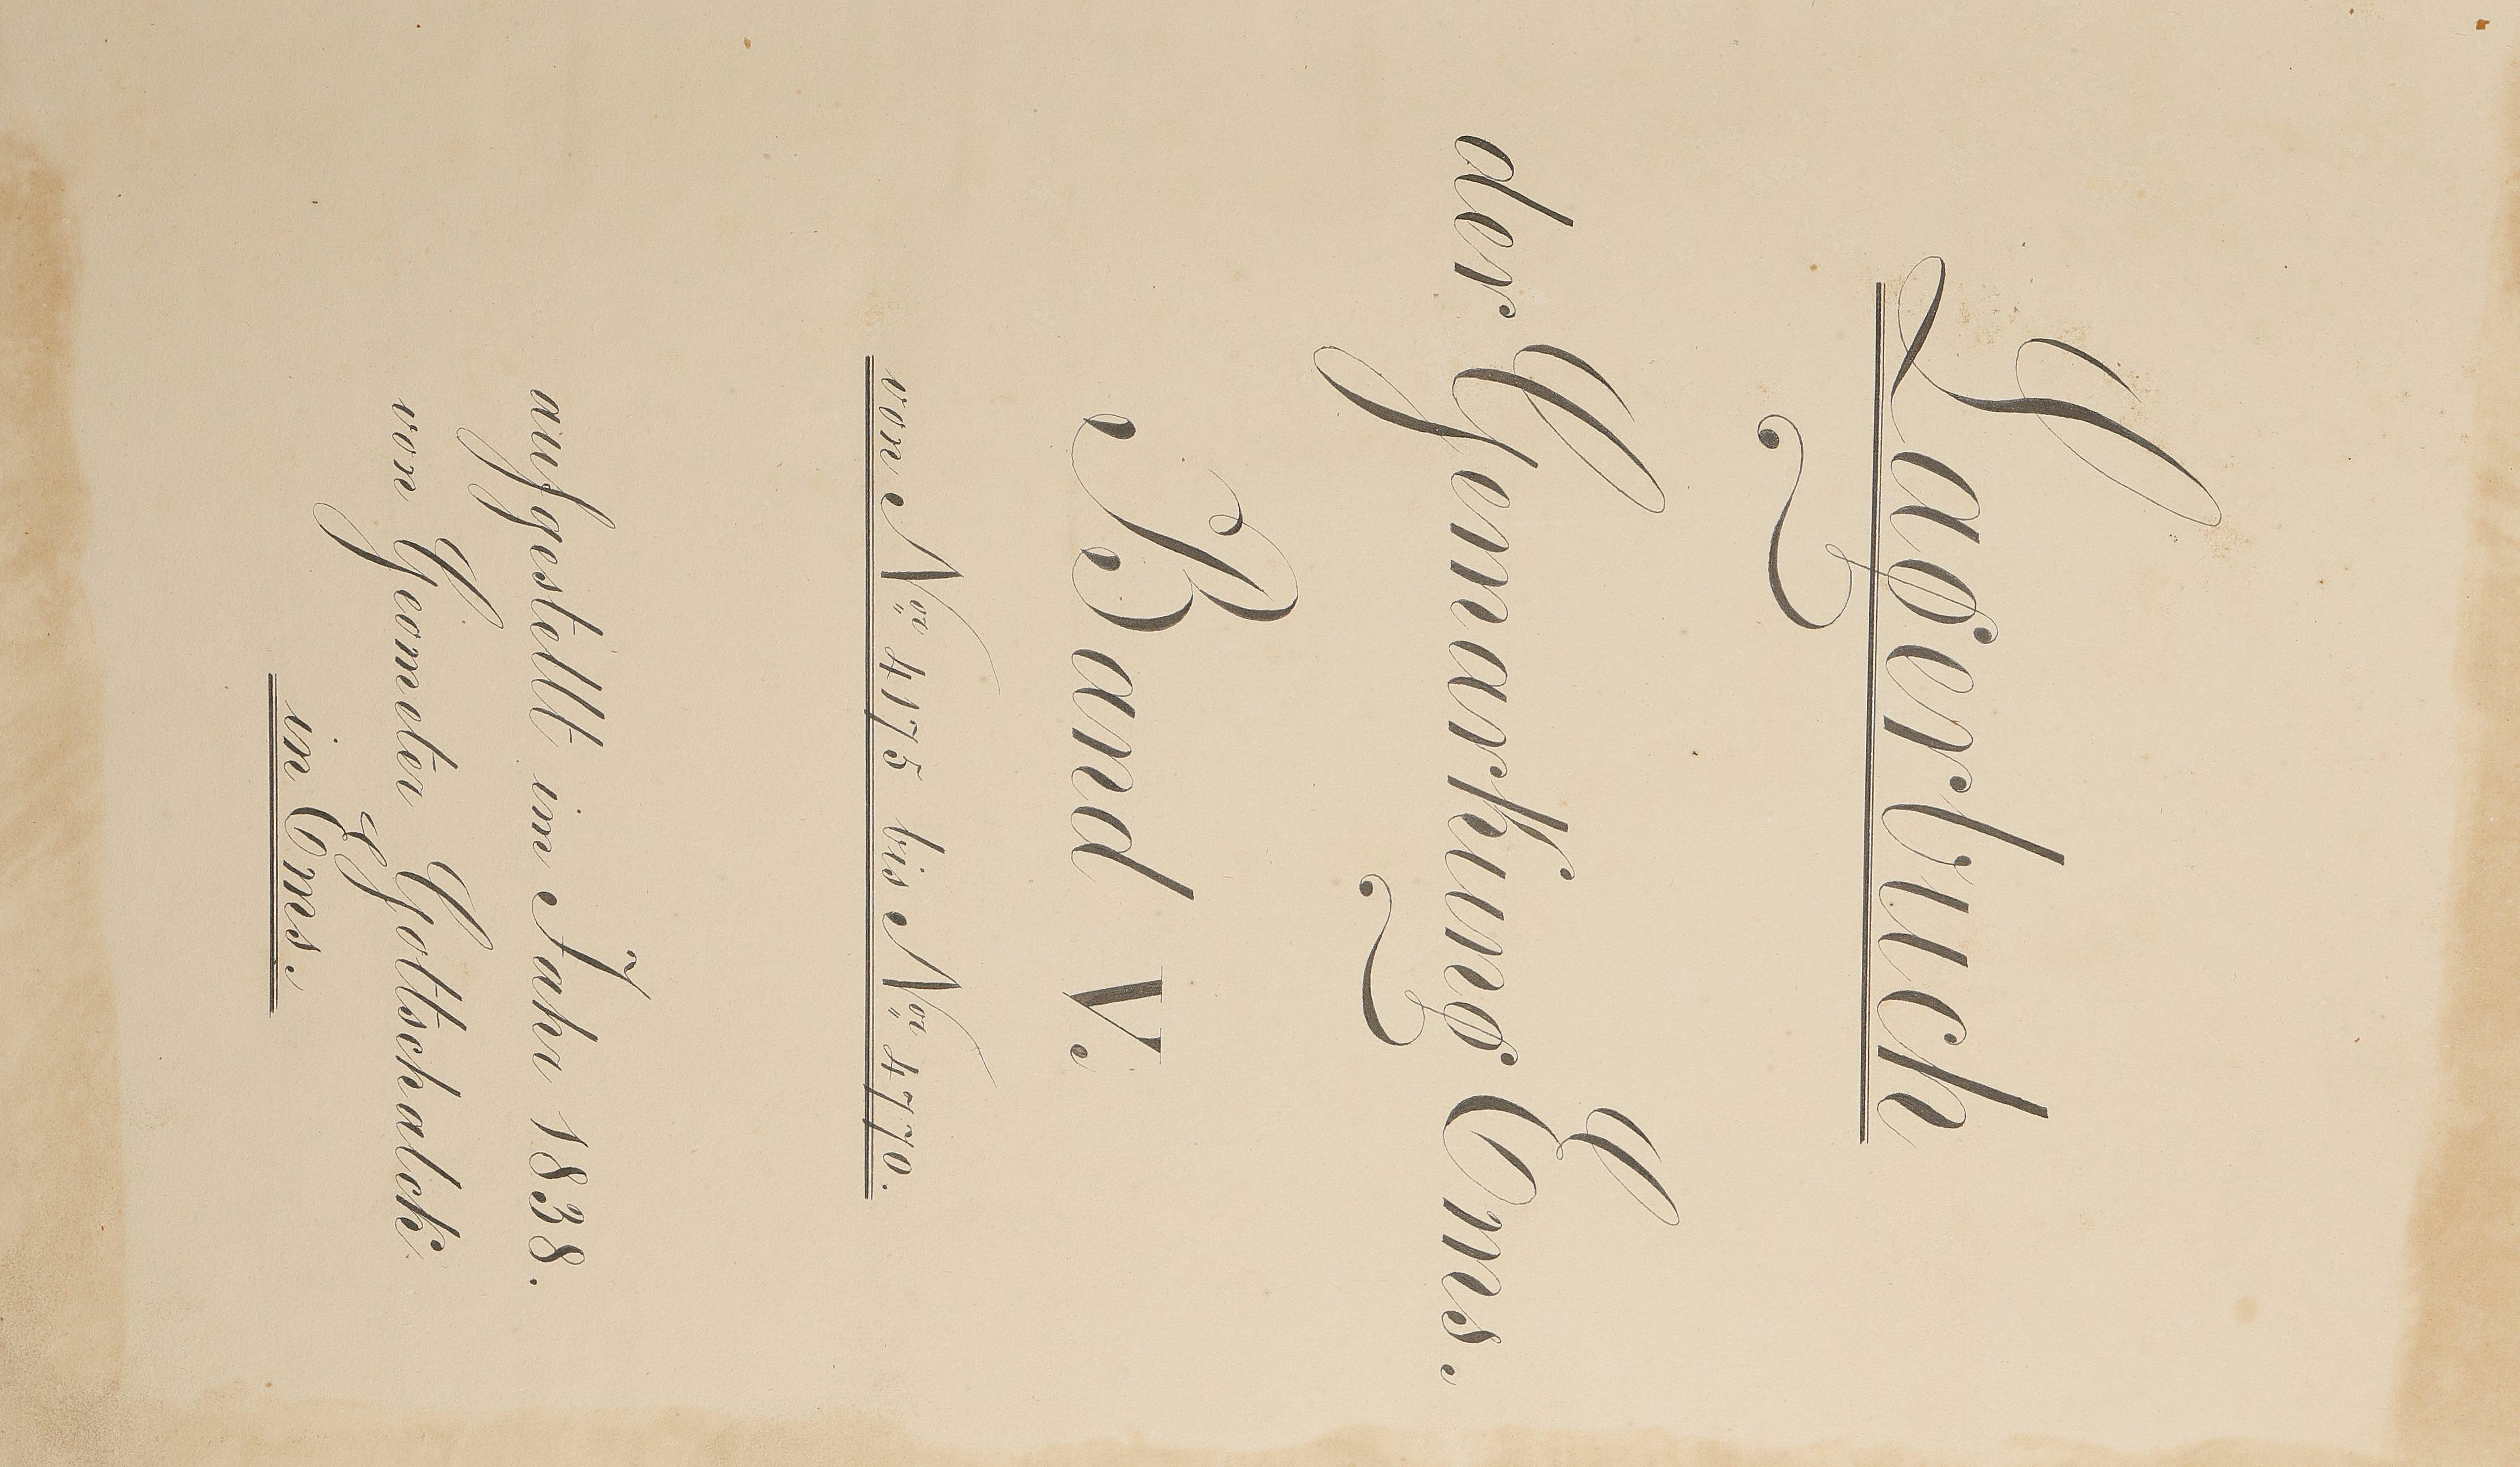 Lagerbuch
der Gemarkung Ems.
Band V.
von Nro 4175 bis Nro 4770.
aufgestellt im Jahr 1838.
von Geometer Gottschalck
in Ems.